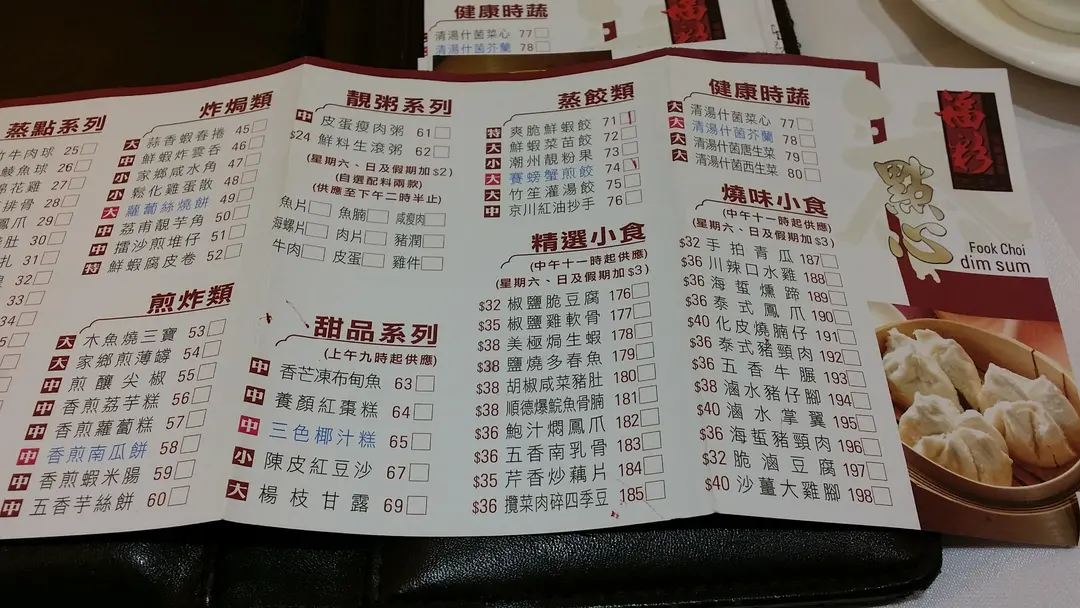 健康時蔬
清湯什菌菜心 77
清湯什菌芥蘭 78
蒸點系列
竹牛肉球 25
鯪魚球 26
棉花雞 27
排骨 28
鳳爪 29
肚 30
扎 31
32
33
34
炸焗類
大 蒜香蝦春捲 45
中 鮮蝦炸雲吞 46
小 家鄉咸水角 47
小 鬆化雞蛋散 48
大 蘿蔔絲燒餅 49
中 荔甫靚芋角 50
中 擂沙煎堆仔 51
特 鮮蝦腐皮卷 52
煎炸類
大 木魚燒三寶 53
大 家鄉煎薄罉 54
中 煎釀尖椒 55
中 香煎荔芋糕 56
中 香煎蘿蔔糕 57
中 香煎南瓜餅 58
中 香煎蝦米腸 59
中 五香芋絲餅 60
靚粥系列
中 皮蛋瘦肉粥 61
$24 鮮料生滾粥 62
(星期六、日及假期加$2)
(自選配料兩款)
(供應至下午二時半止)
魚片 魚腩 咸瘦肉
海螺片 肉片 豬潤
牛肉 皮蛋 雞件
甜品系列
(上午九時起供應)
中 香芒凍布甸魚 63
中 養顏紅棗糕 64
中 三色椰汁糕 65
小 陳皮紅豆沙 67
大 楊枝甘露 69
蒸餃類
特 爽脆鮮蝦餃 71
大 鮮蝦菜苗餃 72
小 潮州靚粉果 73
大 賽螃蟹煎餃 74
大 竹笙灌湯餃 75
中 京川紅油抄手 76
精選小食
(中午十一時起供應)
(星期六、日及假期加$3)
$32 椒鹽脆豆腐 176
$35 椒鹽雞軟骨 177
$38 美極焗生蝦 178
$38 鹽燒多春魚 179
$38 胡椒咸菜豬肚 180
$38 順德爆鯇魚骨腩 181
$36 鮑汁燜鳳爪 182
$36 五香南乳骨 183
$35 芹香炒藕片 184
$36 攬菜肉碎四季豆 185
健康時蔬
大 清湯什菌菜心 77
大 清湯什菌芥蘭 78
大 清湯什菌唐生菜 79
大 清湯什菌西生菜 80
燒味小食
(中午十一時起供應)
(星期六、日及假期加$3)
$32 手拍青瓜 187
$36 川辣口水雞 188
$36 海蜇燻蹄 189
$36 泰式鳳爪 190
$40 化皮燒腩仔 191
$36 泰式豬頸肉 192
$36 五香牛𦟌 193
$38 滷水豬仔腳 194
$40 滷水掌翼 195
$36 海蜇豬頸肉 196
$32 脆滷豆腐 197
$40 沙薑大雞腳 198
福彩
點心
Fook Choi
dim sum